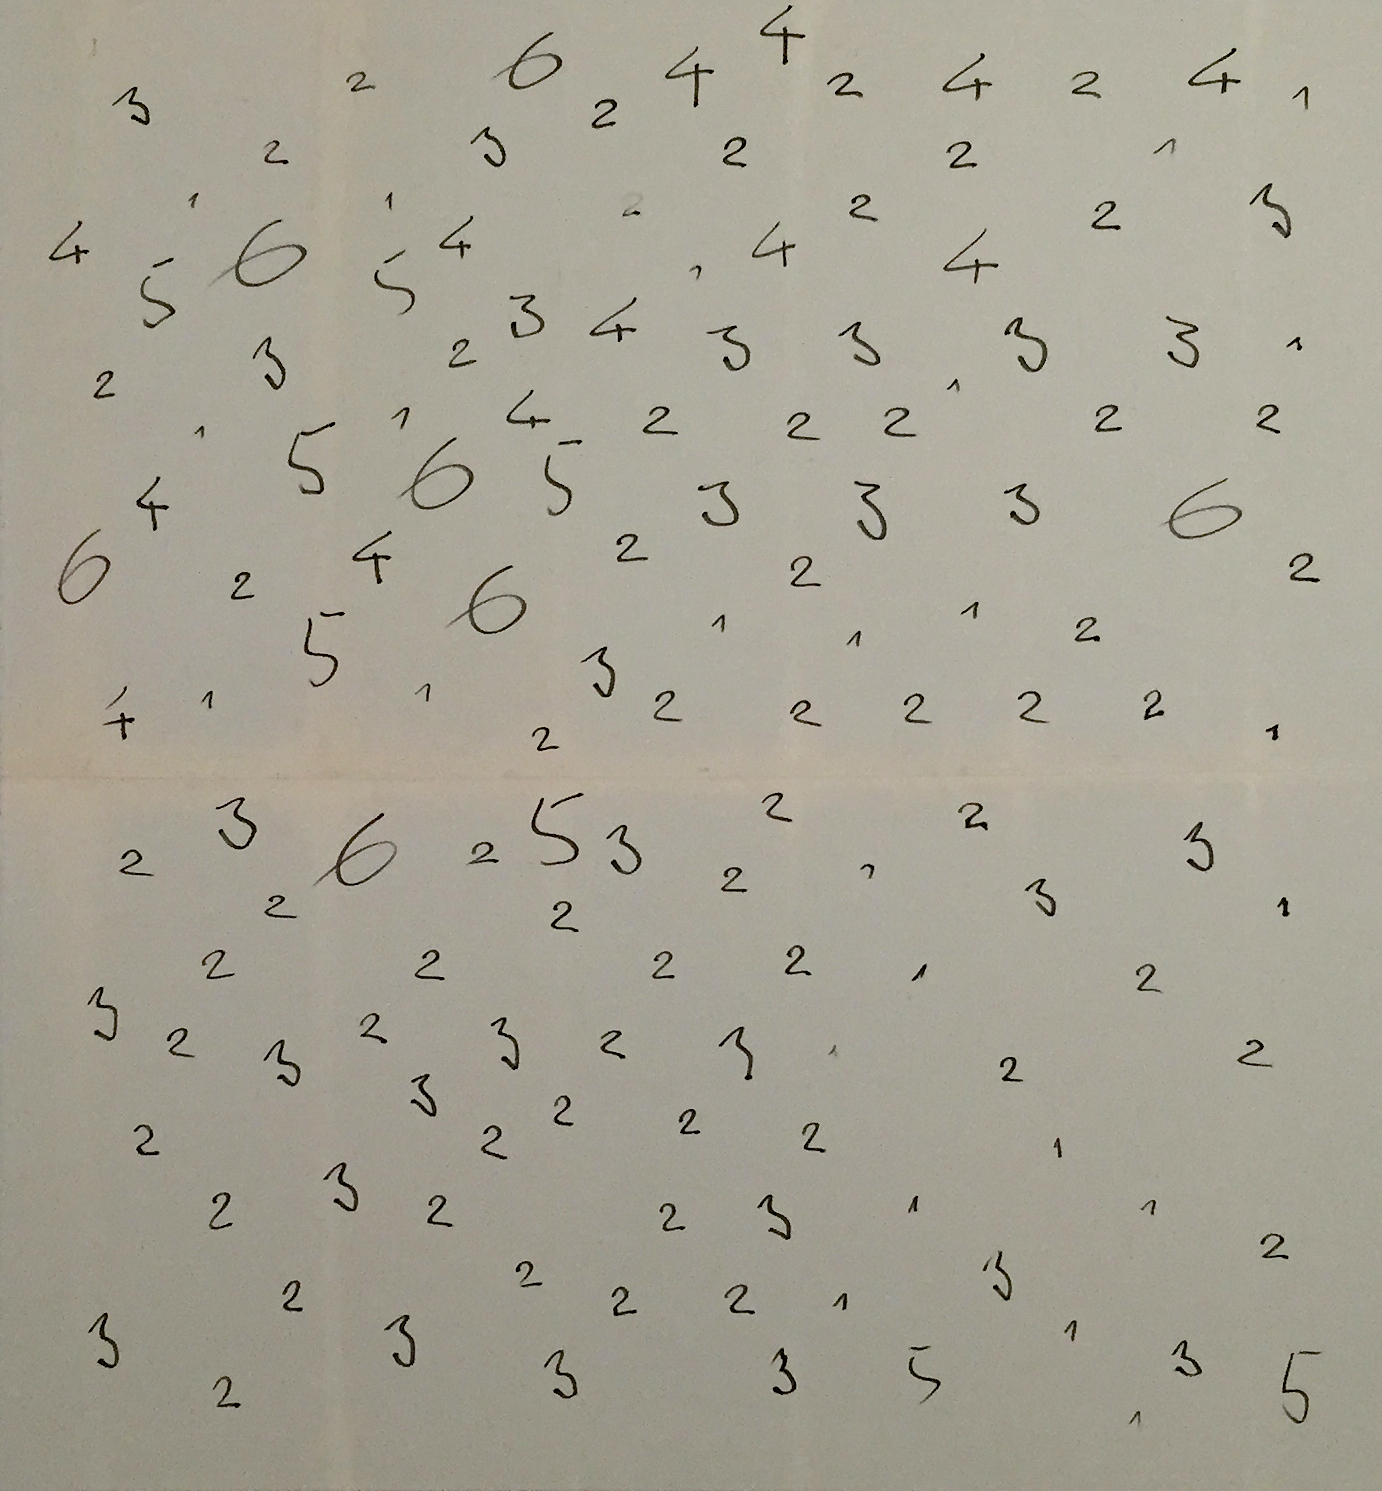 4
2 6 4 2 4 2 4 1
3 2
2 3 2 2 1
1 1 2 2 2 3
4 6 4 4 4
5 5 1
3 4 3 3 3 3 1
2 3 2
1 1 4 2 2 2 1 2 2
5 6 5
4 3 3 3 6
6 2 4 2 2 2
5 6 1 1 1 2
3
4 1 1 2 2 2 2 2 1
2
3 5 2 2
2 6 2 3 2 1 3 3
2 2 1
2 2 2 2 1 2
3
2 3 2 3 2 3 1 2 2
3
2 2 2 2 2 1
2 3 2 2 3 1 1
2 2
2 2 2 1 3
3 3 1
2 3 3 5 3 5
1